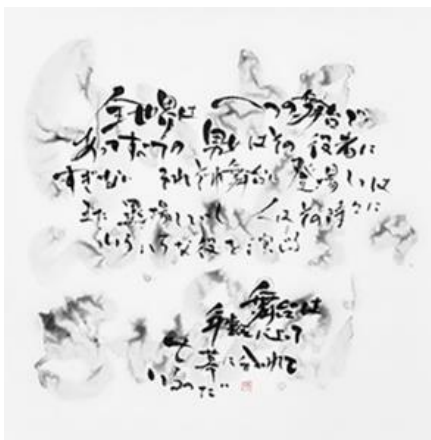 全世界は 一つの舞台で
あってすべての 男女はその 役者に
すぎない それぞれ舞台に 登場しては
また 退場していく 人は 時々に
いろいろな役を
舞台は
年齢によって
七幕に分かれて
いるのだ